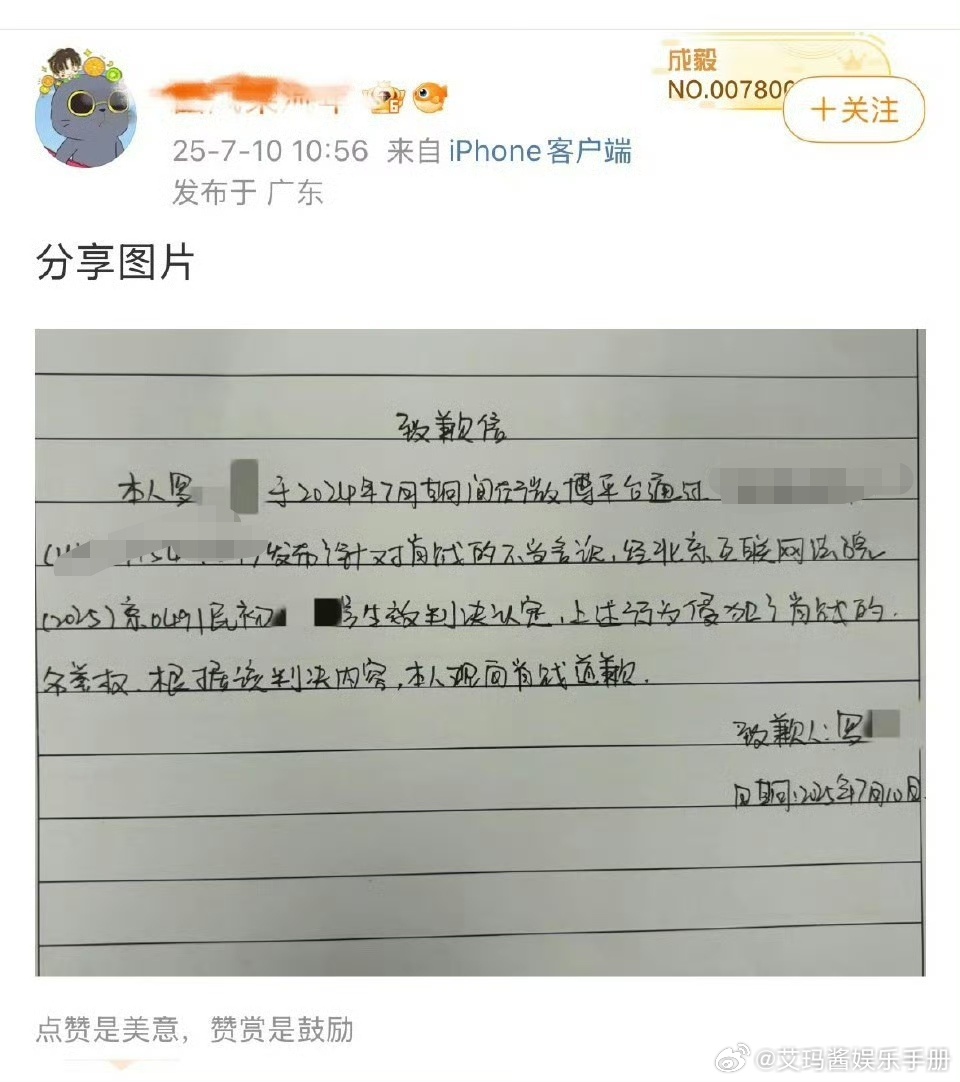 成毅
NO.007800
+关注
25-7-10 10:56 来自 iPhone客户端
发布于 广东
分享图片
致歉信
本人罗 于2024年7月期间在微博平台通过
发布针对肖战的不当言论,经北京互联网法院
(2025)京0491民初 号生效判决认定,上述行为侵犯了肖战的
名誉权.根据该判决内容,本人现向肖战道歉.
致歉人:罗
日期:2025年7月10日
点赞是美意,赞赏是鼓励
@艾玛酱娱乐手册